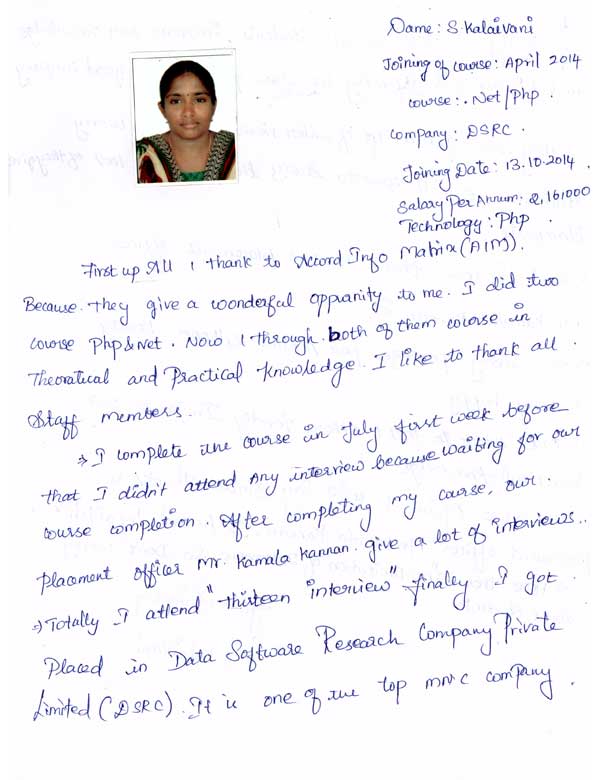 Name: S. Kalaivani
Joining of course: April 2014
course: .Net/Php
Company: DSRC.
Joining Date: 13.10.2014.
Salary Per Annum: 2,16,000
Technology: Php.
First up All I thank to Accord Info Matrix (AIM).
Because. They give a wonderful oppranity to me. I did two
course Php & Net. Now I through. both of them course in
Theoratical and Practical knowledge. I like to thank all.
Staff members.
⇒ I complete the course in July first week before
that I didn't attend Any interview because waiting for our
course completion. After completing my course, our.
Placement officer Mr. Kamala Kannan. give a lot of interviews..
⇒ Totally I attend "thirteen interview" finaley I got.
Placed in Data Software Research Company Private
Limited (DSRC). It is one of the top mnc company.